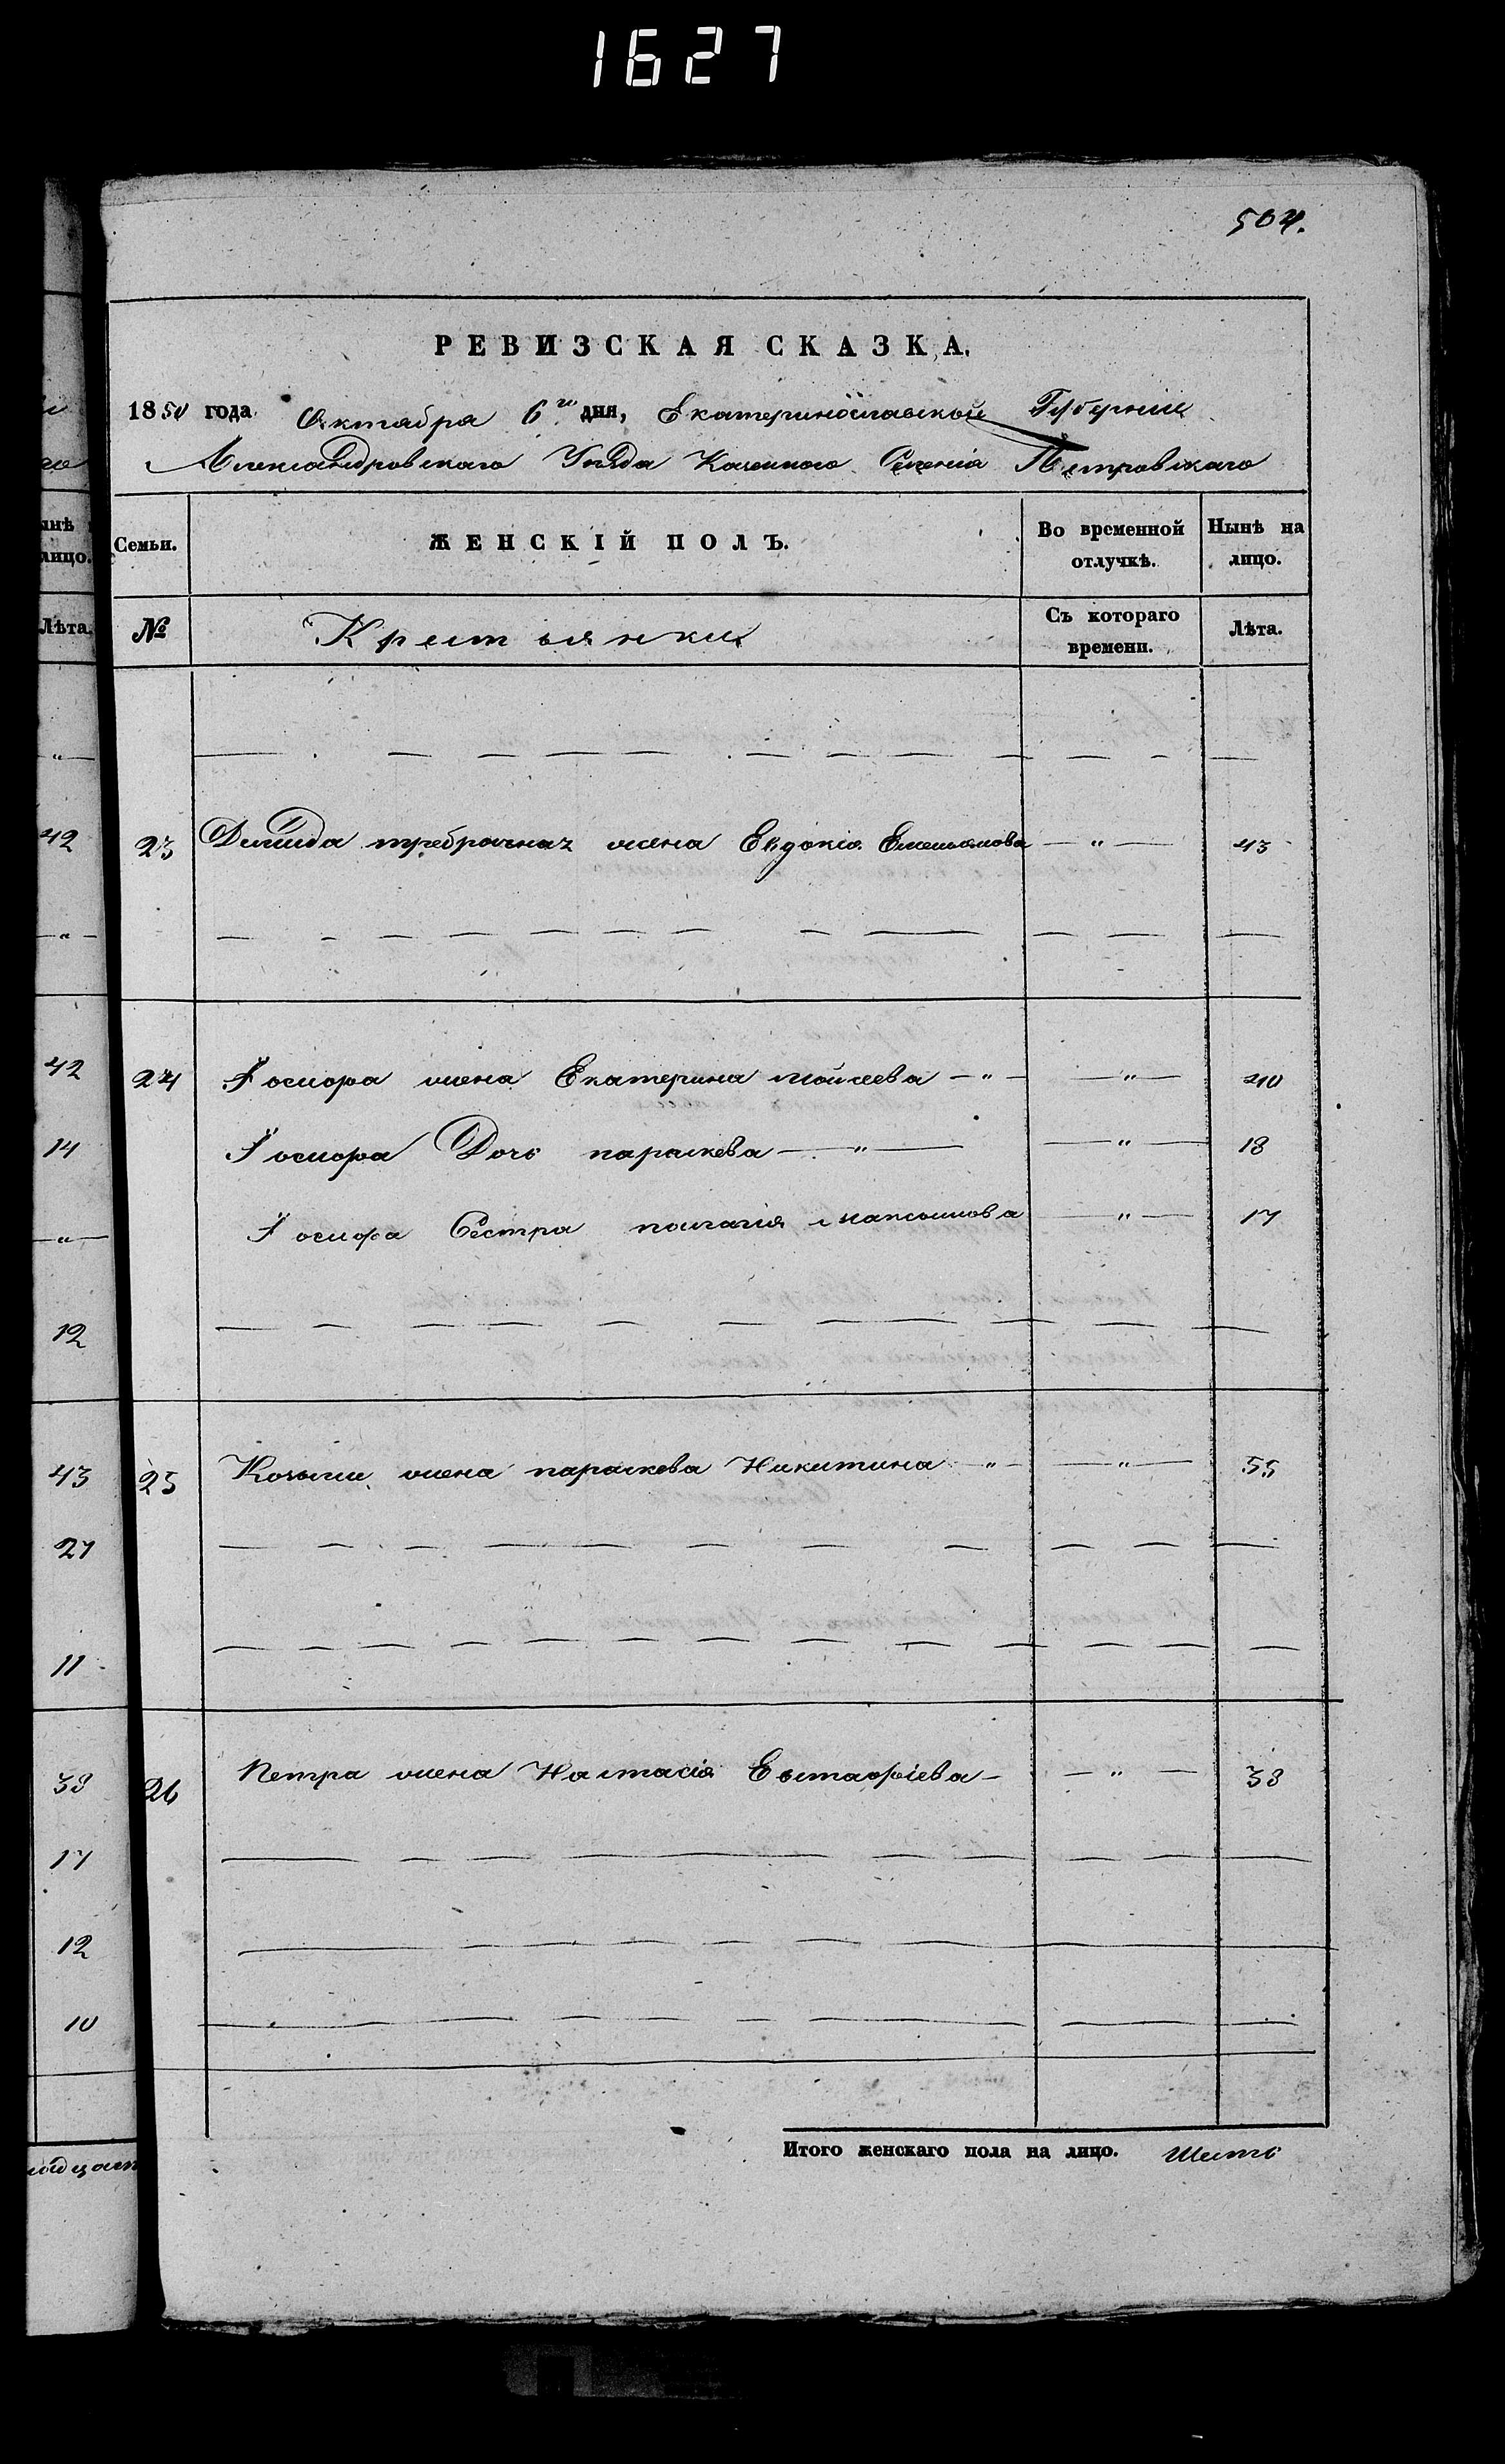 1627
504.
РЕВИЗСКАЯ СКАЗКА.
1850 года Октября 6го дня, Екатеринославской Губерніи
Александровскаго Уѣзда Казенного Селенія Петровскаго
Семьи. ЖЕНСКІЙ ПОЛЪ. Во временной отлучкѣ. Нынѣ на лицо.
№ Крестьянки Съ котораго времени. Лѣта.
23 Демида требрачная жена Евдокія Емельянова — " — 43
24 Іосифа жена Екатерина Мойсеева — " — — " — 40
Іосифа Дочь параскева — " — — " — 18
Іосифа Сестра пелагія Максимова — " — 17
25 Козьмы жена параскева Никитина — " — — " — 55
26 Петра жена Настасія Евстафіева — — " — 38
Итого женскаго пола на лицо. Шесть
инѣ
лицо.
Лѣта.
— " —
42
— " —
42
14
— " —
12
43
27
11
39
17
12
10